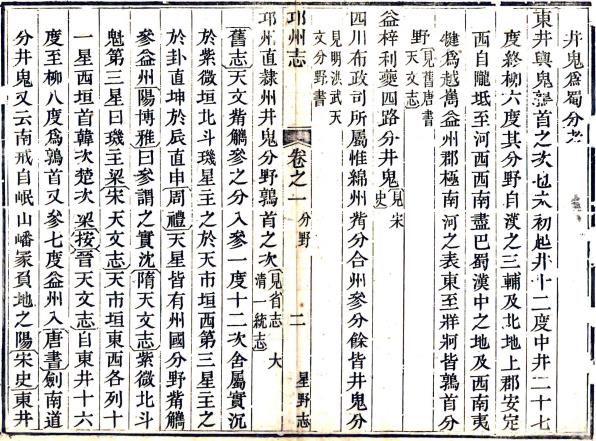 井鬼爲蜀分考
東井輿鬼鶉首之次也六初起井十二度中井二十七
度終柳六度其分野自漢之三輔及北地上郡安定
西自隴坻至河西西南盡巴蜀漢中之地及西南夷
犍爲越嶲益州郡極南河之表東至牂牁皆鶉首分
野見舊唐書天文志
益梓利夔四路分井鬼見宋史
四川布政司所屬惟綿州觜分合州參分餘皆井鬼分
見明洪武天文分野書
邛州志 卷之一 分野 二 星野志
邛州直隸州井鬼分野鶉首之次見省志 大清一統志
舊志天文觜觿參之分入參一度十二次舍屬實沉
於紫微垣北斗璣星主之於天市垣西第三星主之
於卦直坤於辰直申周禮天星皆有州國分野觜觿
參益州陽博雅曰參謂之實沈隋天文志紫微北斗
魁第三星曰璣主梁宋天文志天市垣東西各列十
一星西垣首韓次楚次梁按晉天文志自東井十六
度至柳八度爲鶉首又參七度益州入唐書劍南道
分井鬼又云南戒自岷山嶓冢負地之陽宋史東井